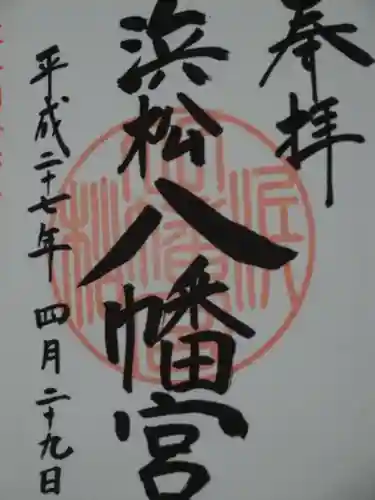 奉拝
浜松八幡宮
平成二十七年 四月二十九日